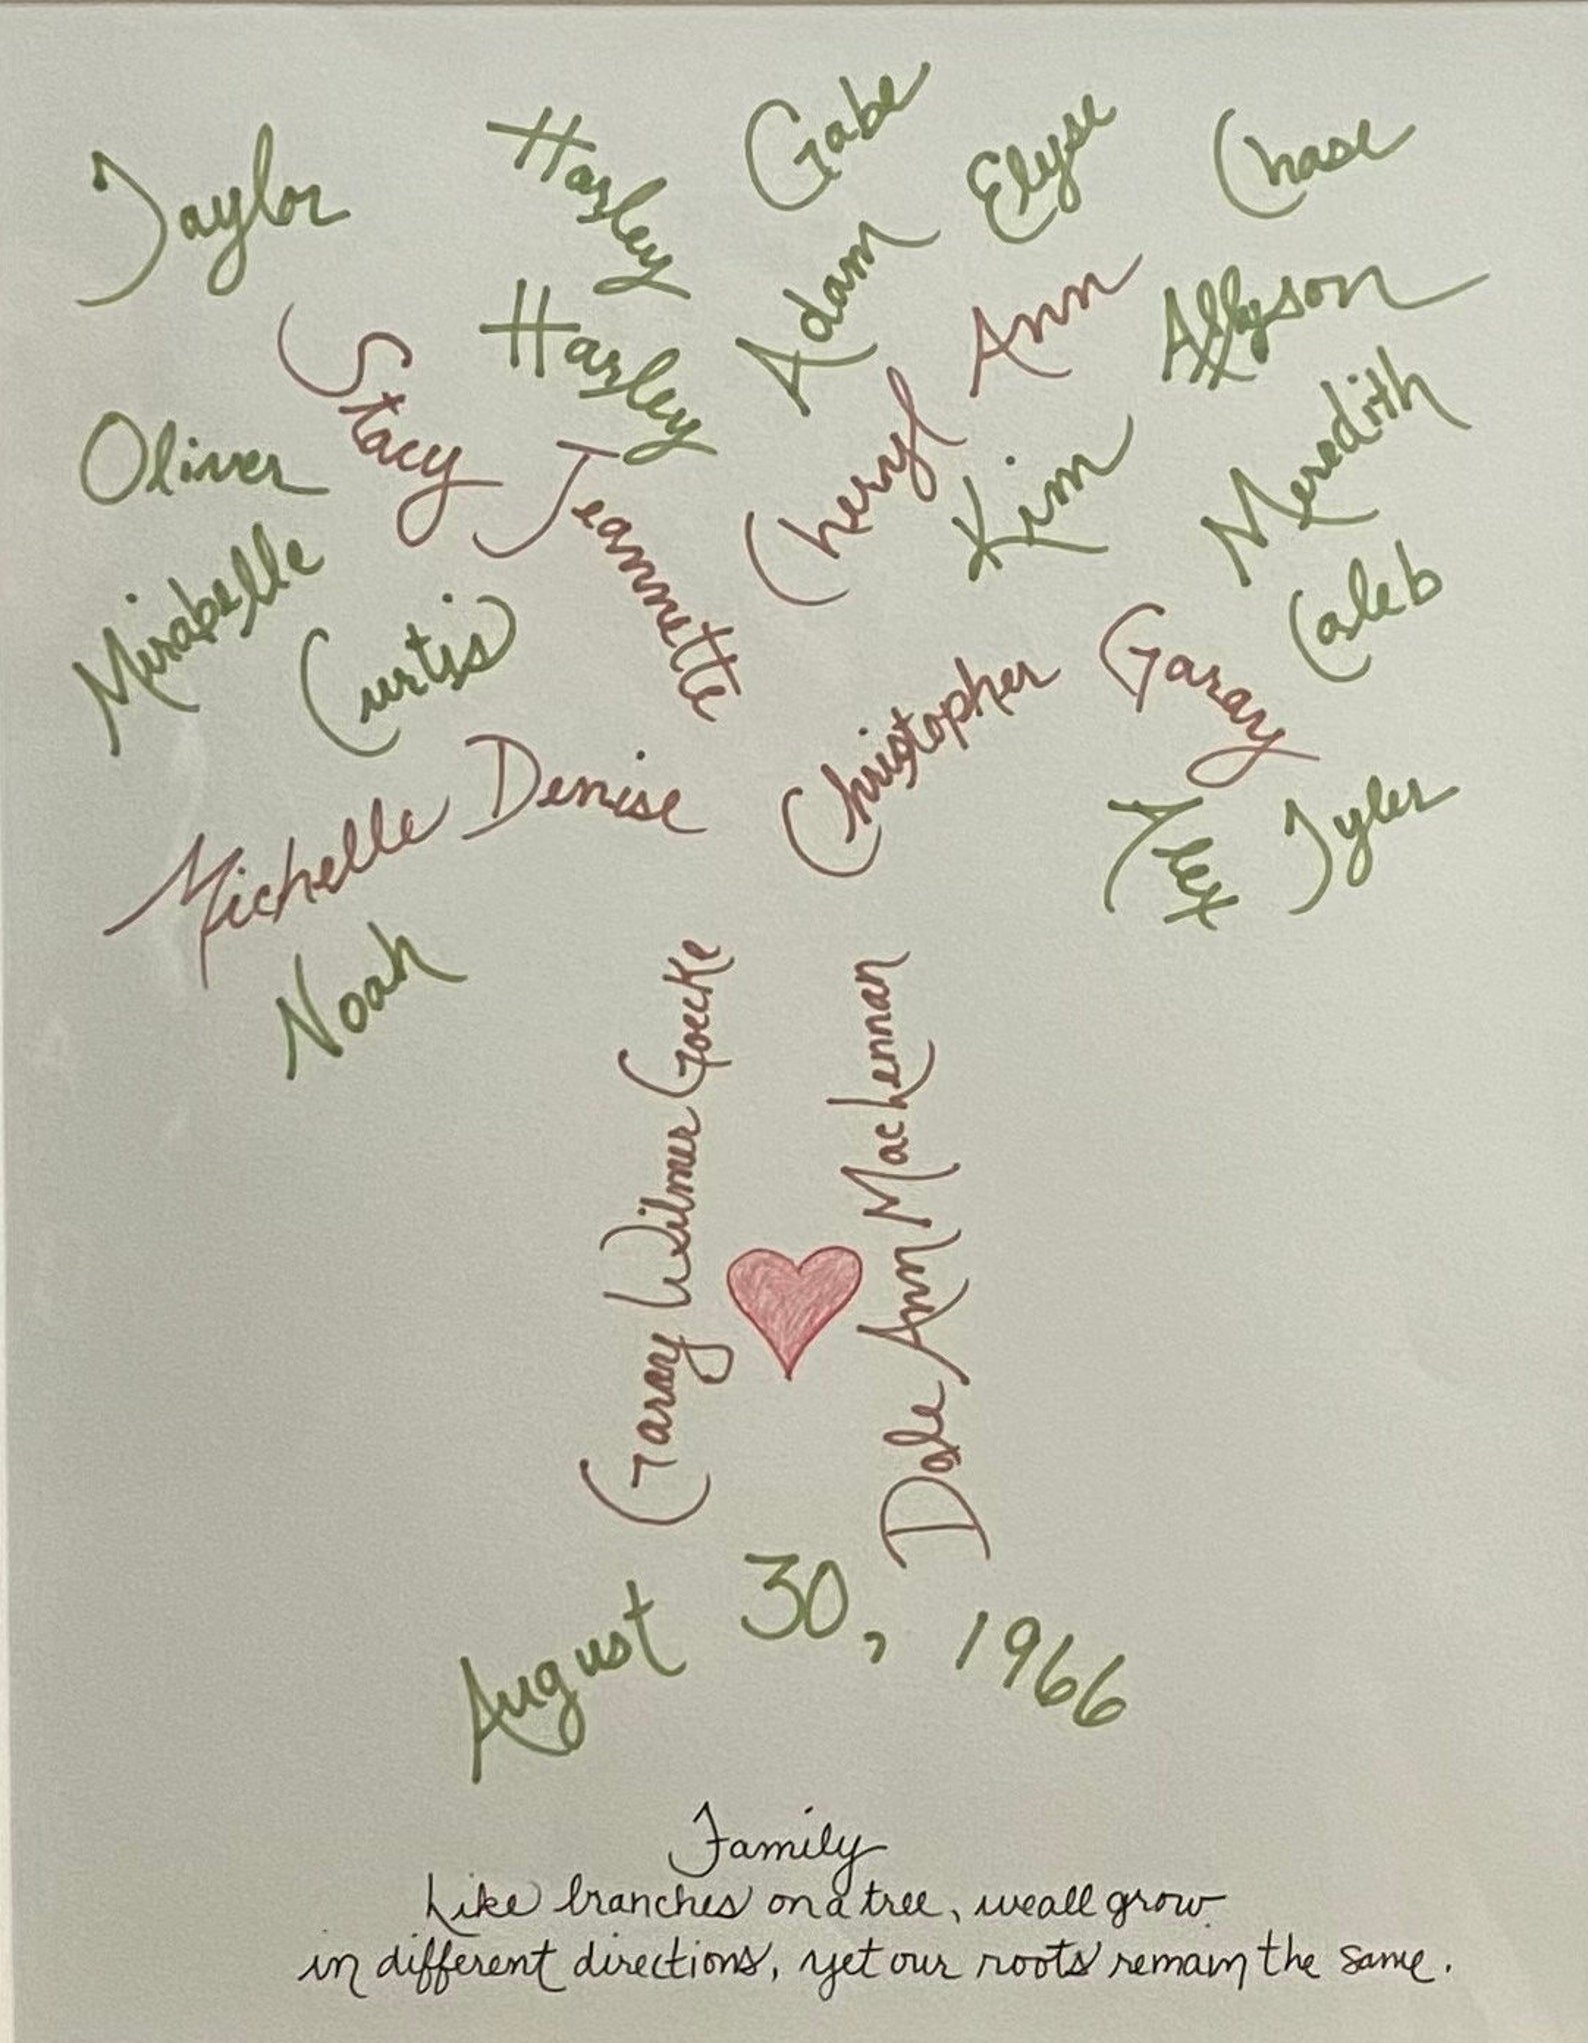 Taylor
Harley
Gabe
Elyse
Chase
Stacy
Harley
Adam
Ann
Allyson
Oliver
Jeannette
Cheryl
Kim
Meredith
Mirabelle
Curtis
Christopher
Garay
Caleb
Michelle Denise
Alex
Tyler
Noah
Garay Wilmer Goecke
Dale Ann MacLennan
August 30, 1966
Family
Like branches on a tree, we all grow
in different directions, yet our roots remain the same.